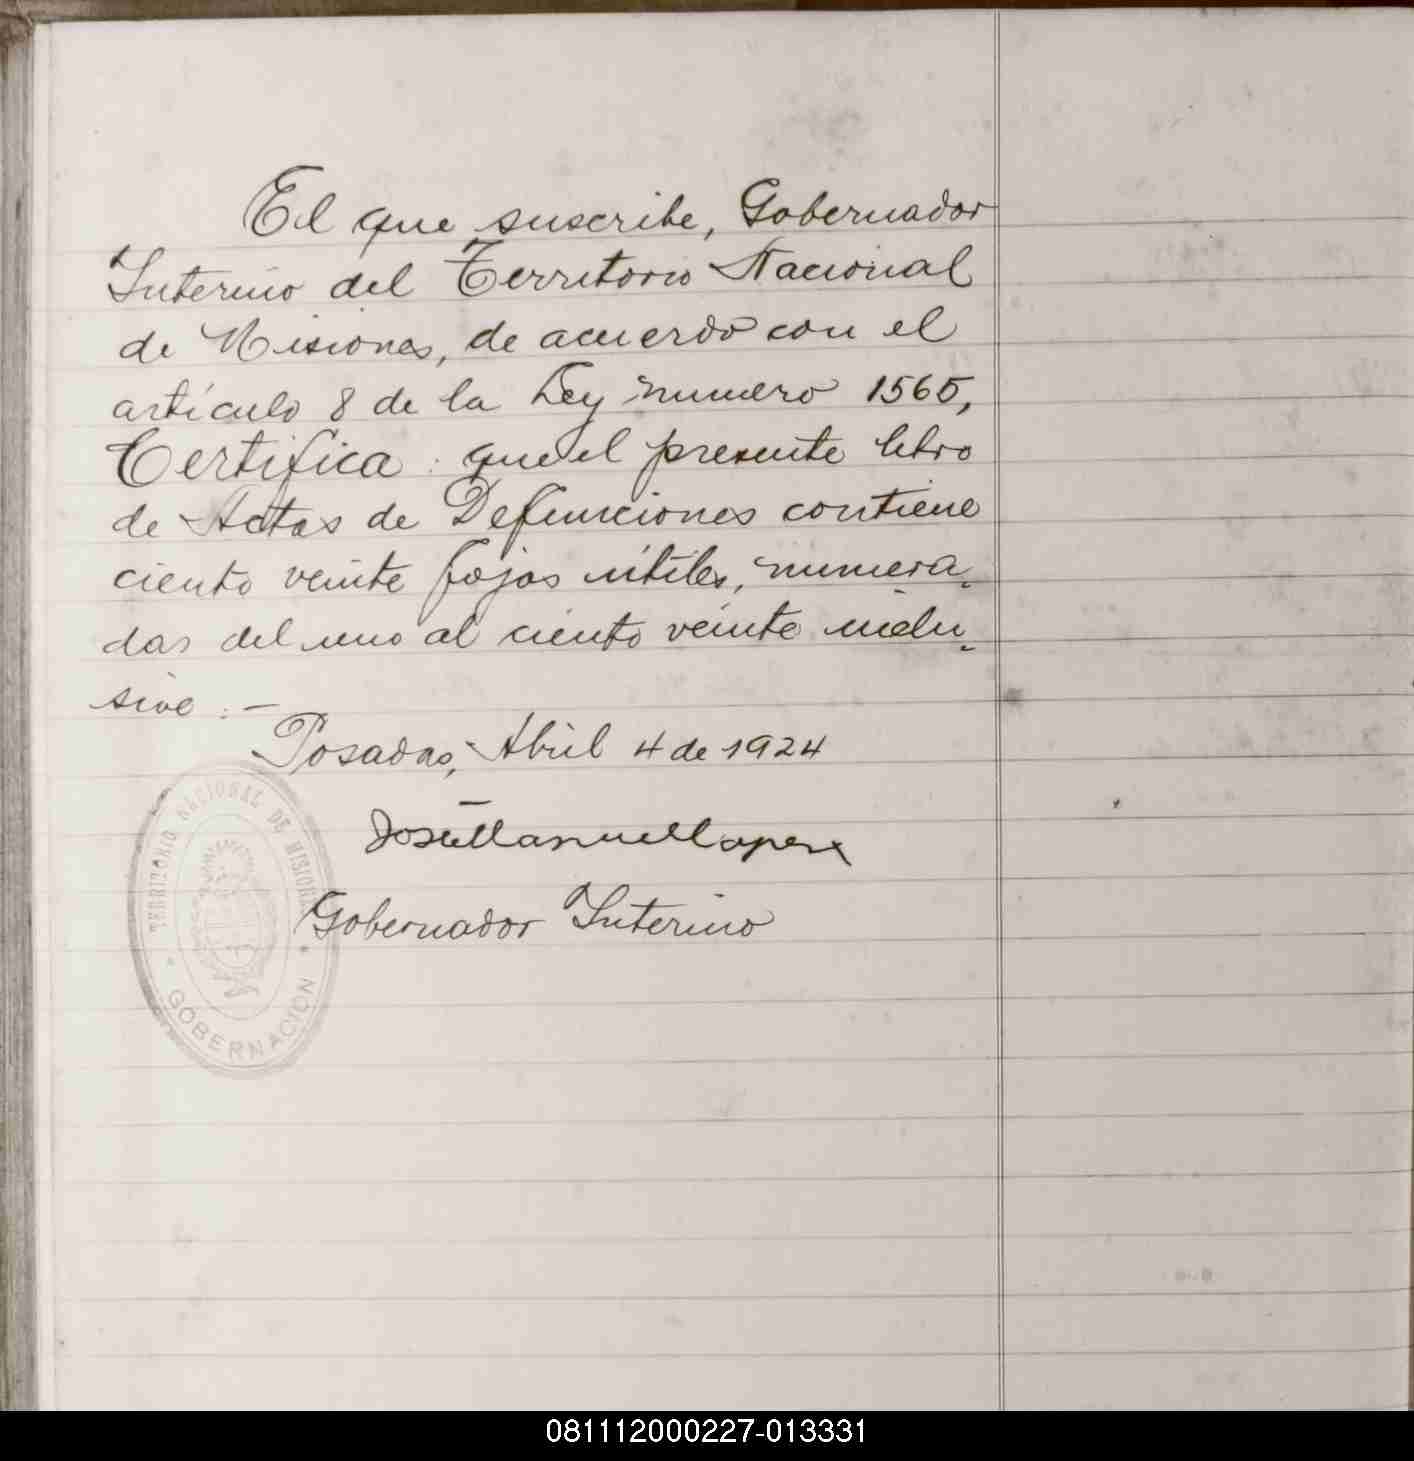 El que suscribe, Gobernador
Interino del Territorio Nacional
de Misiones, de acuerdo con el
artículo 8 de la Ley numero 1565,
Certifica: que el presente libro
de Actas de Defunciones contiene
ciento veinte fojas útiles, numera-
das del uno al ciento veinte inclu-
sive.-
Posadas, Abril 4 de 1924
José Manuel Lopez
Gobernador Interino
TERRITORIO NACIONAL DE MISIONES
GOBERNACION
081112000227-013331